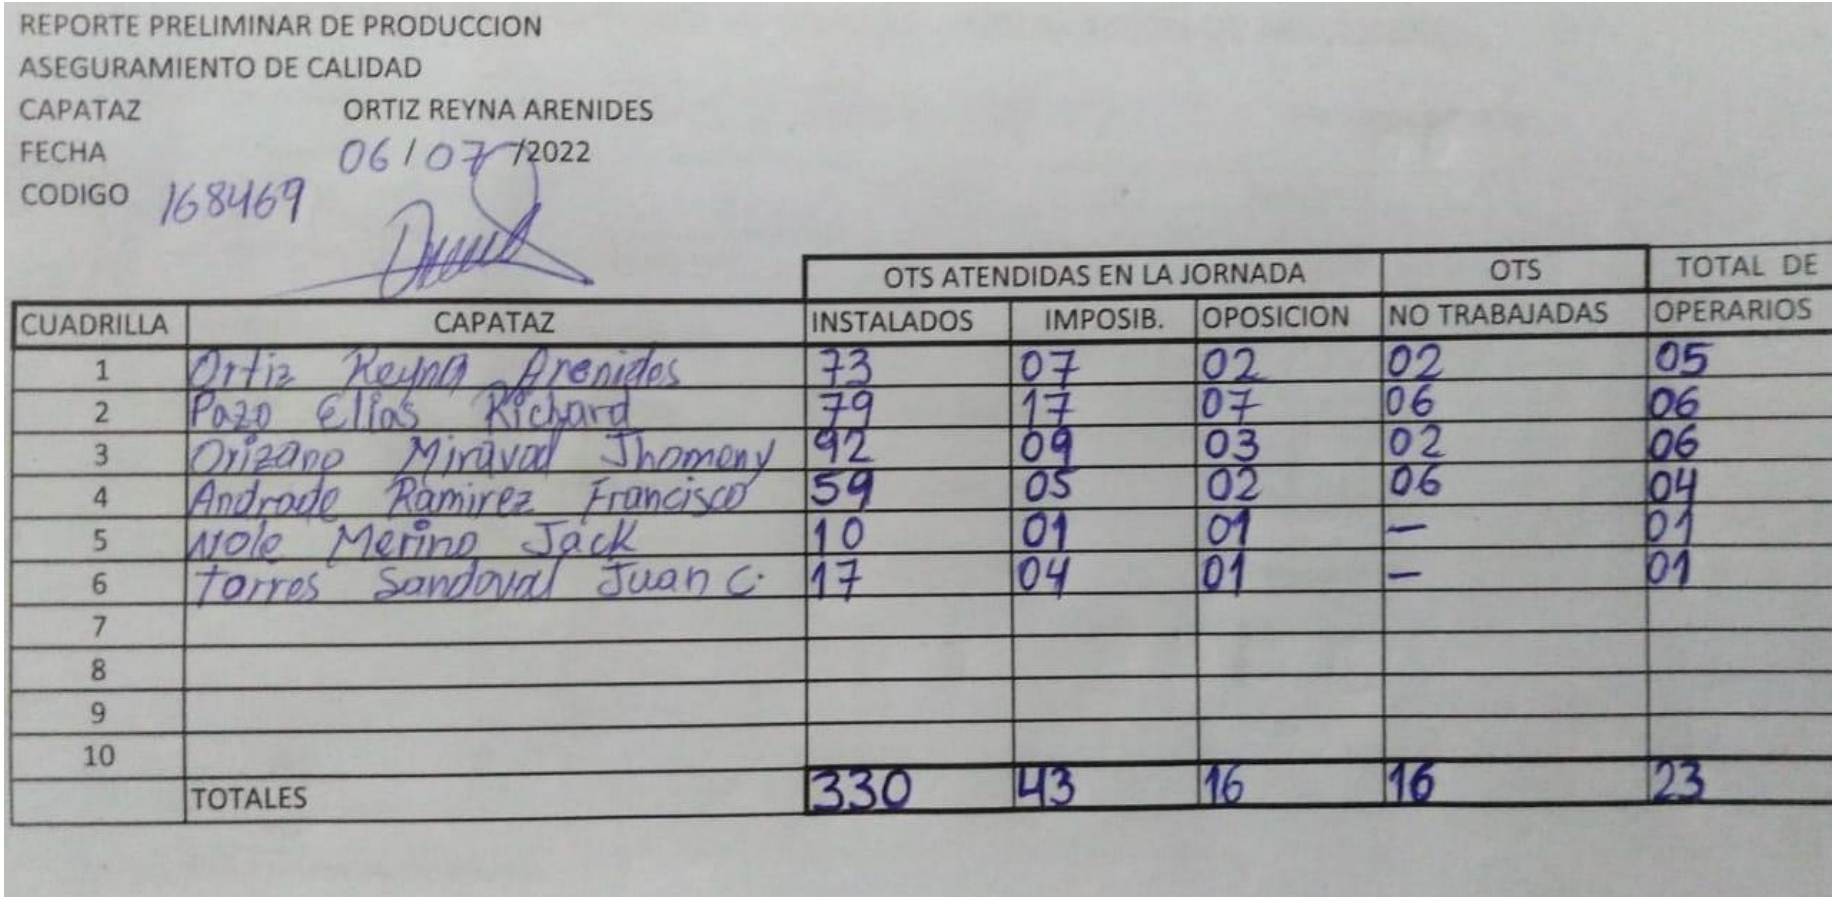 REPORTE PRELIMINAR DE PRODUCCION
ASEGURAMIENTO DE CALIDAD
CAPATAZ ORTIZ REYNA ARENIDES
FECHA 06/07/2022
CODIGO 168469
OTS ATENDIDAS EN LA JORNADA OTS TOTAL DE
CUADRILLA CAPATAZ INSTALADOS IMPOSIB. OPOSICION NO TRABAJADAS OPERARIOS
1 Ortiz Reyna Arenides 73 07 02 02 05
2 Pazo Elias Richard 79 17 07 06 06
3 Orizano Miraval Jhomeny 92 09 03 02 06
4 Andrade Ramirez Francisco 59 05 02 06 04
5 Nole Merino Jack 10 01 01 – 01
6 Torres Sandoval Juan C. 17 04 01 – 01
7
8
9
10
TOTALES 330 43 16 16 23